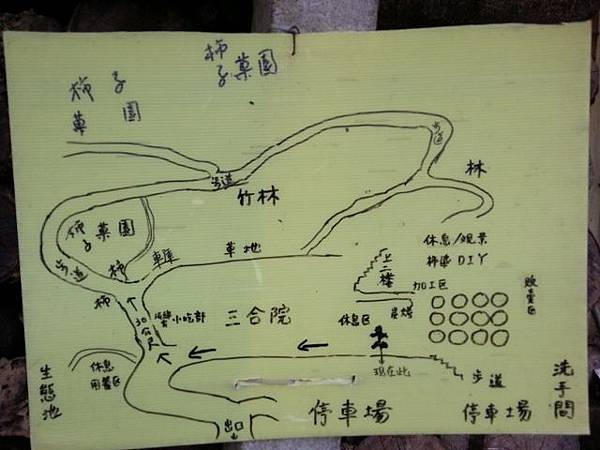 柿子菓園
柿子
菓園
步道
步道
林
竹林
柿子菓園
步道
柿
車庫
草地
休息/觀景
柿染DIY
上二樓
加工區
販賣區
柿
30公尺
小吃部
三合院
休息區
炭烤
現在此
生態池
休息
用餐區
步道
洗手間
出口
停車場
停車場